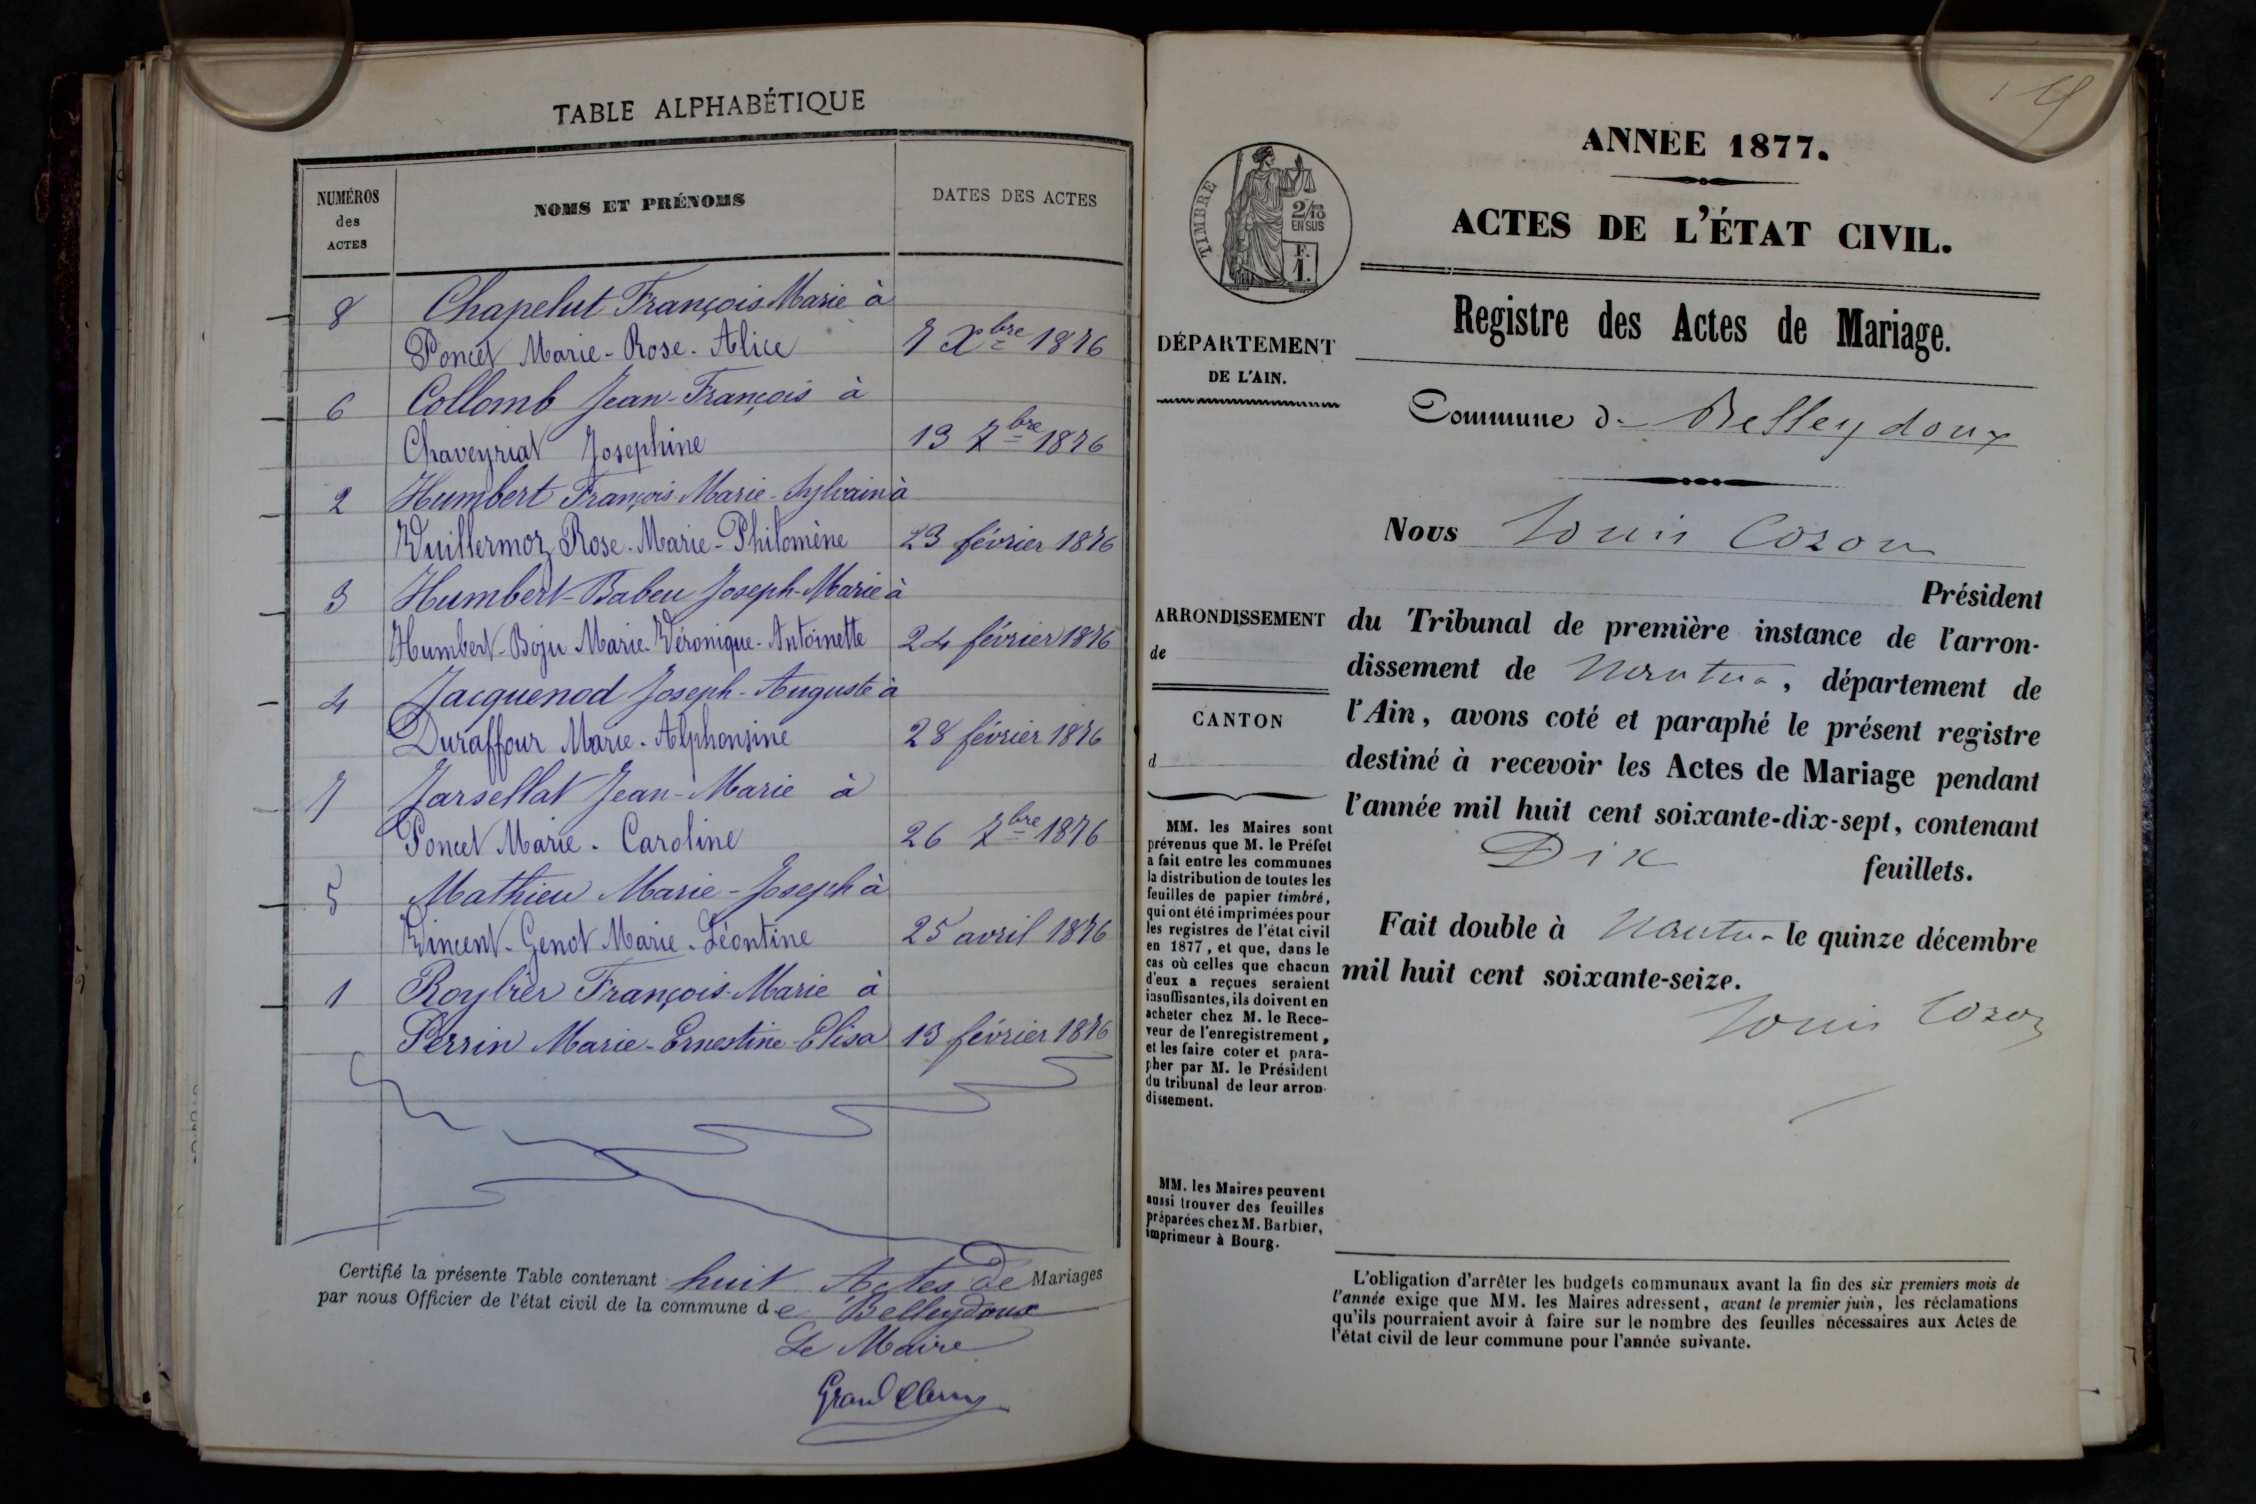 TABLE ALPHABÉTIQUE
NUMÉROS
des
ACTES
NOMS ET PRÉNOMS
DATES DES ACTES
8 Chapelut François Marie à
Poncet Marie-Rose-Alice 7 Xbre 1876
6 Collomb Jean-François à
Chaveyriat Josephine 13 7bre 1876
2 Humbert François-Marie-Sylvain à
Vuillermoz Rose-Marie-Philomène 23 février 1876
3 Humbert-Babeu Joseph-Marie à
Humbert-Boju Marie-Véronique-Antoinette 24 février 1876
4 Jacquenod Joseph-Auguste à
Duraffour Marie-Alphonsine 28 février 1876
7 Jarsellat Jean-Marie à
Poncet Marie-Caroline 26 7bre 1876
5 Mathieu Marie-Joseph à
Vincent-Genot Marie-Léontine 25 avril 1876
1 Roybier François-Marie à
Perrin Marie-Ernestine-Elisa 13 février 1876
Certifié la présente Table contenant huit Actes de Mariages
par nous Officier de l'état civil de la commune de Belleydoux
Le Maire
ANNÉE 1877.
ACTES DE L'ÉTAT CIVIL.
TIMBRE
2/10
EN SUS
F.
1.
Registre des Actes de Mariage.
DÉPARTEMENT
DE L'AIN.
Commune d Belleydoux
Nous Louis Cozon
Président
ARRONDISSEMENT
de
CANTON
d
du Tribunal de première instance de l'arron-
dissement de Nantua, département de
l'Ain, avons coté et paraphé le présent registre
destiné à recevoir les Actes de Mariage pendant
l'année mil huit cent soixante-dix-sept, contenant
Dix feuillets.
Fait double à Nantua le quinze décembre
mil huit cent soixante-seize.
Louis Cozon
MM. les Maires sont
prévenus que M. le Préfet
a fait entre les communes
la distribution de toutes les
feuilles de papier timbré,
qui ont été imprimées pour
les registres de l'état civil
en 1877, et que, dans le
cas où celles que chacun
d'eux a reçues seraient
insuffisantes, ils doivent en
acheter chez M. le Rece-
veur de l'enregistrement,
et les faire coter et para-
pher par M. le Président
du tribunal de leur arron-
dissement.
MM. les Maires peuvent
aussi trouver des feuilles
préparées chez M. Barbier,
imprimeur à Bourg.
L'obligation d'arrêter les budgets communaux avant la fin des six premiers mois de
l'année exige que MM. les Maires adressent, avant le premier juin, les réclamations
qu'ils pourraient avoir à faire sur le nombre des feuilles nécessaires aux Actes de
l'état civil de leur commune pour l'année suivante.